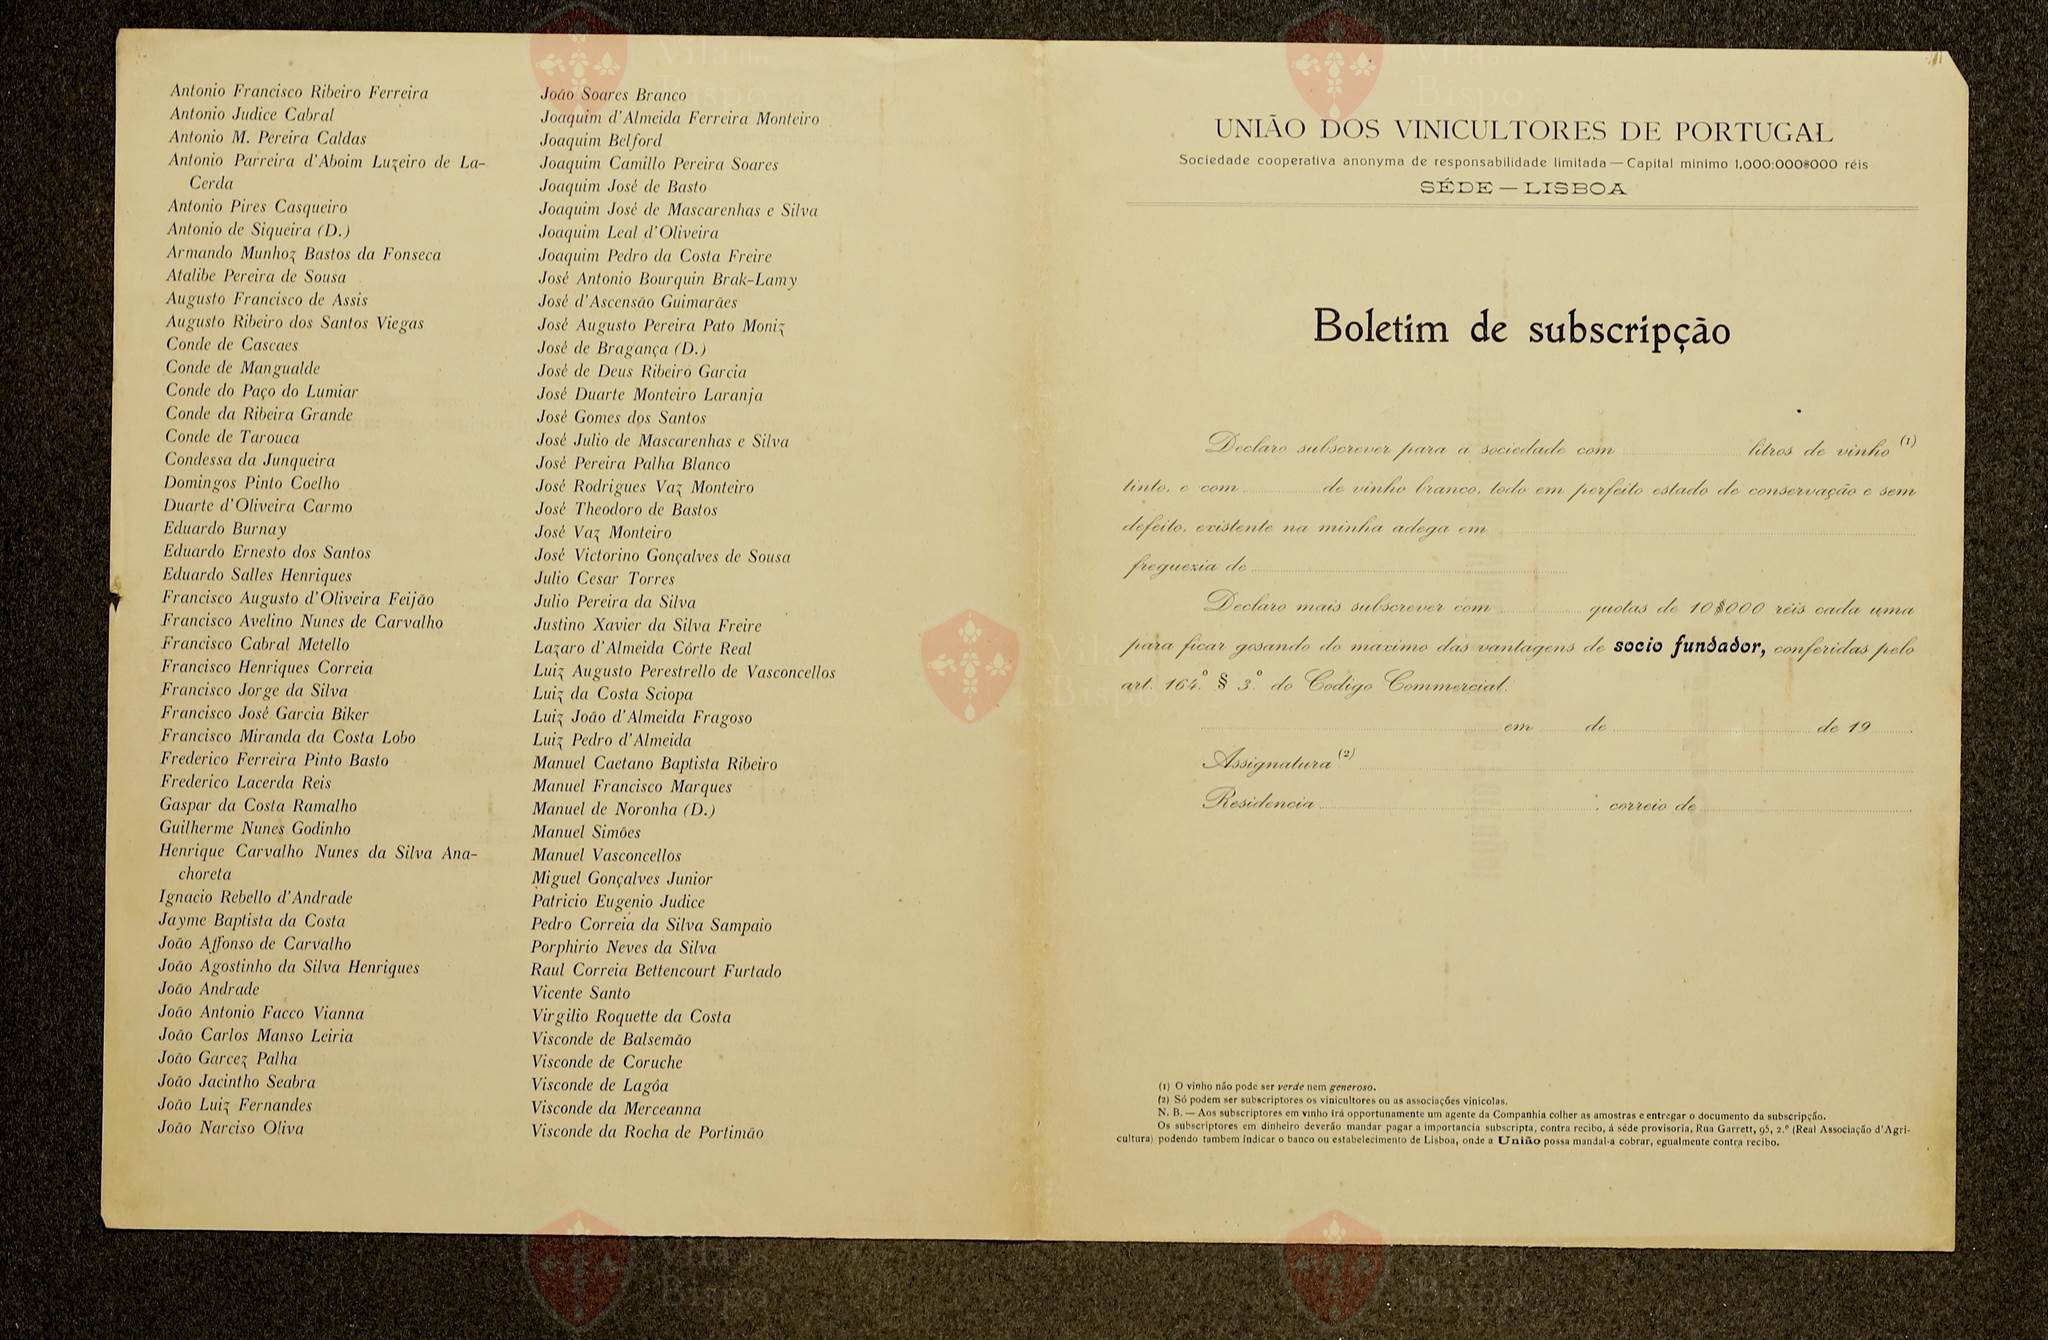 Antonio Francisco Ribeiro Ferreira
Antonio Judice Cabral
Antonio M. Pereira Caldas
Antonio Parreira d'Aboim Luzeiro de La-
Cerda
Antonio Pires Casqueiro
Antonio de Siqueira (D.)
Armando Munhoz Bastos da Fonseca
Atalibe Pereira de Sousa
Augusto Francisco de Assis
Augusto Ribeiro dos Santos Viegas
Conde de Cascaes
Conde de Mangualde
Conde do Paço do Lumiar
Conde da Ribeira Grande
Conde de Tarouca
Condessa da Junqueira
Domingos Pinto Coelho
Duarte d'Oliveira Carmo
Eduardo Burnay
Eduardo Ernesto dos Santos
Eduardo Salles Henriques
Francisco Augusto d'Oliveira Feijão
Francisco Avelino Nunes de Carvalho
Francisco Cabral Metello
Francisco Henriques Correia
Francisco Jorge da Silva
Francisco José Garcia Biker
Francisco Miranda da Costa Lobo
Frederico Ferreira Pinto Basto
Frederico Lacerda Reis
Gaspar da Costa Ramalho
Guilherme Nunes Godinho
Henrique Carvalho Nunes da Silva Ana-
choreta
Ignacio Rebello d'Andrade
Jayme Baptista da Costa
João Affonso de Carvalho
João Agostinho da Silva Henriques
João Andrade
João Antonio Facco Vianna
João Carlos Manso Leiria
João Garcez Palha
João Jacintho Seabra
João Luiz Fernandes
João Narciso Oliva
João Soares Branco
Joaquim d'Almeida Ferreira Monteiro
Joaquim Belford
Joaquim Camillo Pereira Soares
Joaquim José de Basto
Joaquim José de Mascarenhas e Silva
Joaquim Leal d'Oliveira
Joaquim Pedro da Costa Freire
José Antonio Bourquin Brak-Lamy
José d'Ascensão Guimarães
José Augusto Pereira Pato Moniz
José de Bragança (D.)
José de Deus Ribeiro Garcia
José Duarte Monteiro Laranja
José Gomes dos Santos
José Julio de Mascarenhas e Silva
José Pereira Palha Blanco
José Rodrigues Vaz Monteiro
José Theodoro de Bastos
José Vaz Monteiro
José Victorino Gonçalves de Sousa
Julio Cesar Torres
Julio Pereira da Silva
Justino Xavier da Silva Freire
Lazaro d'Almeida Côrte Real
Luiz Augusto Perestrello de Vasconcellos
Luiz da Costa Sciopa
Luiz João d'Almeida Fragoso
Luiz Pedro d'Almeida
Manuel Caetano Baptista Ribeiro
Manuel Francisco Marques
Manuel de Noronha (D.)
Manuel Simões
Manuel Vasconcellos
Miguel Gonçalves Junior
Patricio Eugenio Judice
Pedro Correia da Silva Sampaio
Porphirio Neves da Silva
Raul Correia Bettencourt Furtado
Vicente Santo
Virgilio Roquette da Costa
Visconde de Balsemão
Visconde de Coruche
Visconde de Lagôa
Visconde da Merceanna
Visconde da Rocha de Portimão
UNIÃO DOS VINICULTORES DE PORTUGAL
Sociedade cooperativa anonyma de responsabilidade limitada — Capital minimo 1.000:000$000 réis
SÉDE — LISBOA
Boletim de subscripção
Declaro subscrever para a sociedade com litros de vinho (1)
tinto, e com de vinho branco, todo em perfeito estado de conservação e sem
defeito, existente na minha adega em
freguezia de
Declaro mais subscrever com quotas de 10$000 réis cada uma
para ficar gosando do maximo das vantagens de socio fundador, conferidas pelo
art. 164.º § 3.º do Codigo Commercial.
em de de 19
Assignatura (2)
Residencia : correio de
(1) O vinho não pode ser verde nem generoso.
(2) Só podem ser subscriptores os vinicultores ou as associações vinicolas.
N. B. — Aos subscriptores em vinho irá opportunamente um agente da Companhia colher as amostras e entregar o documento da subscripção.
Os subscriptores em dinheiro deverão mandar pagar a importancia subscripta, contra recibo, á séde provisoria, Rua Garrett, 95, 2.º (Real Associação d'Agri-
cultura) podendo tambem indicar o banco ou estabelecimento de Lisboa, onde a União possa mandal-a cobrar, egualmente contra recibo.
Vila do
Bispo
Vila do
Bispo
Vila do
Bispo
Vila do
Bispo
Vila do
Bispo